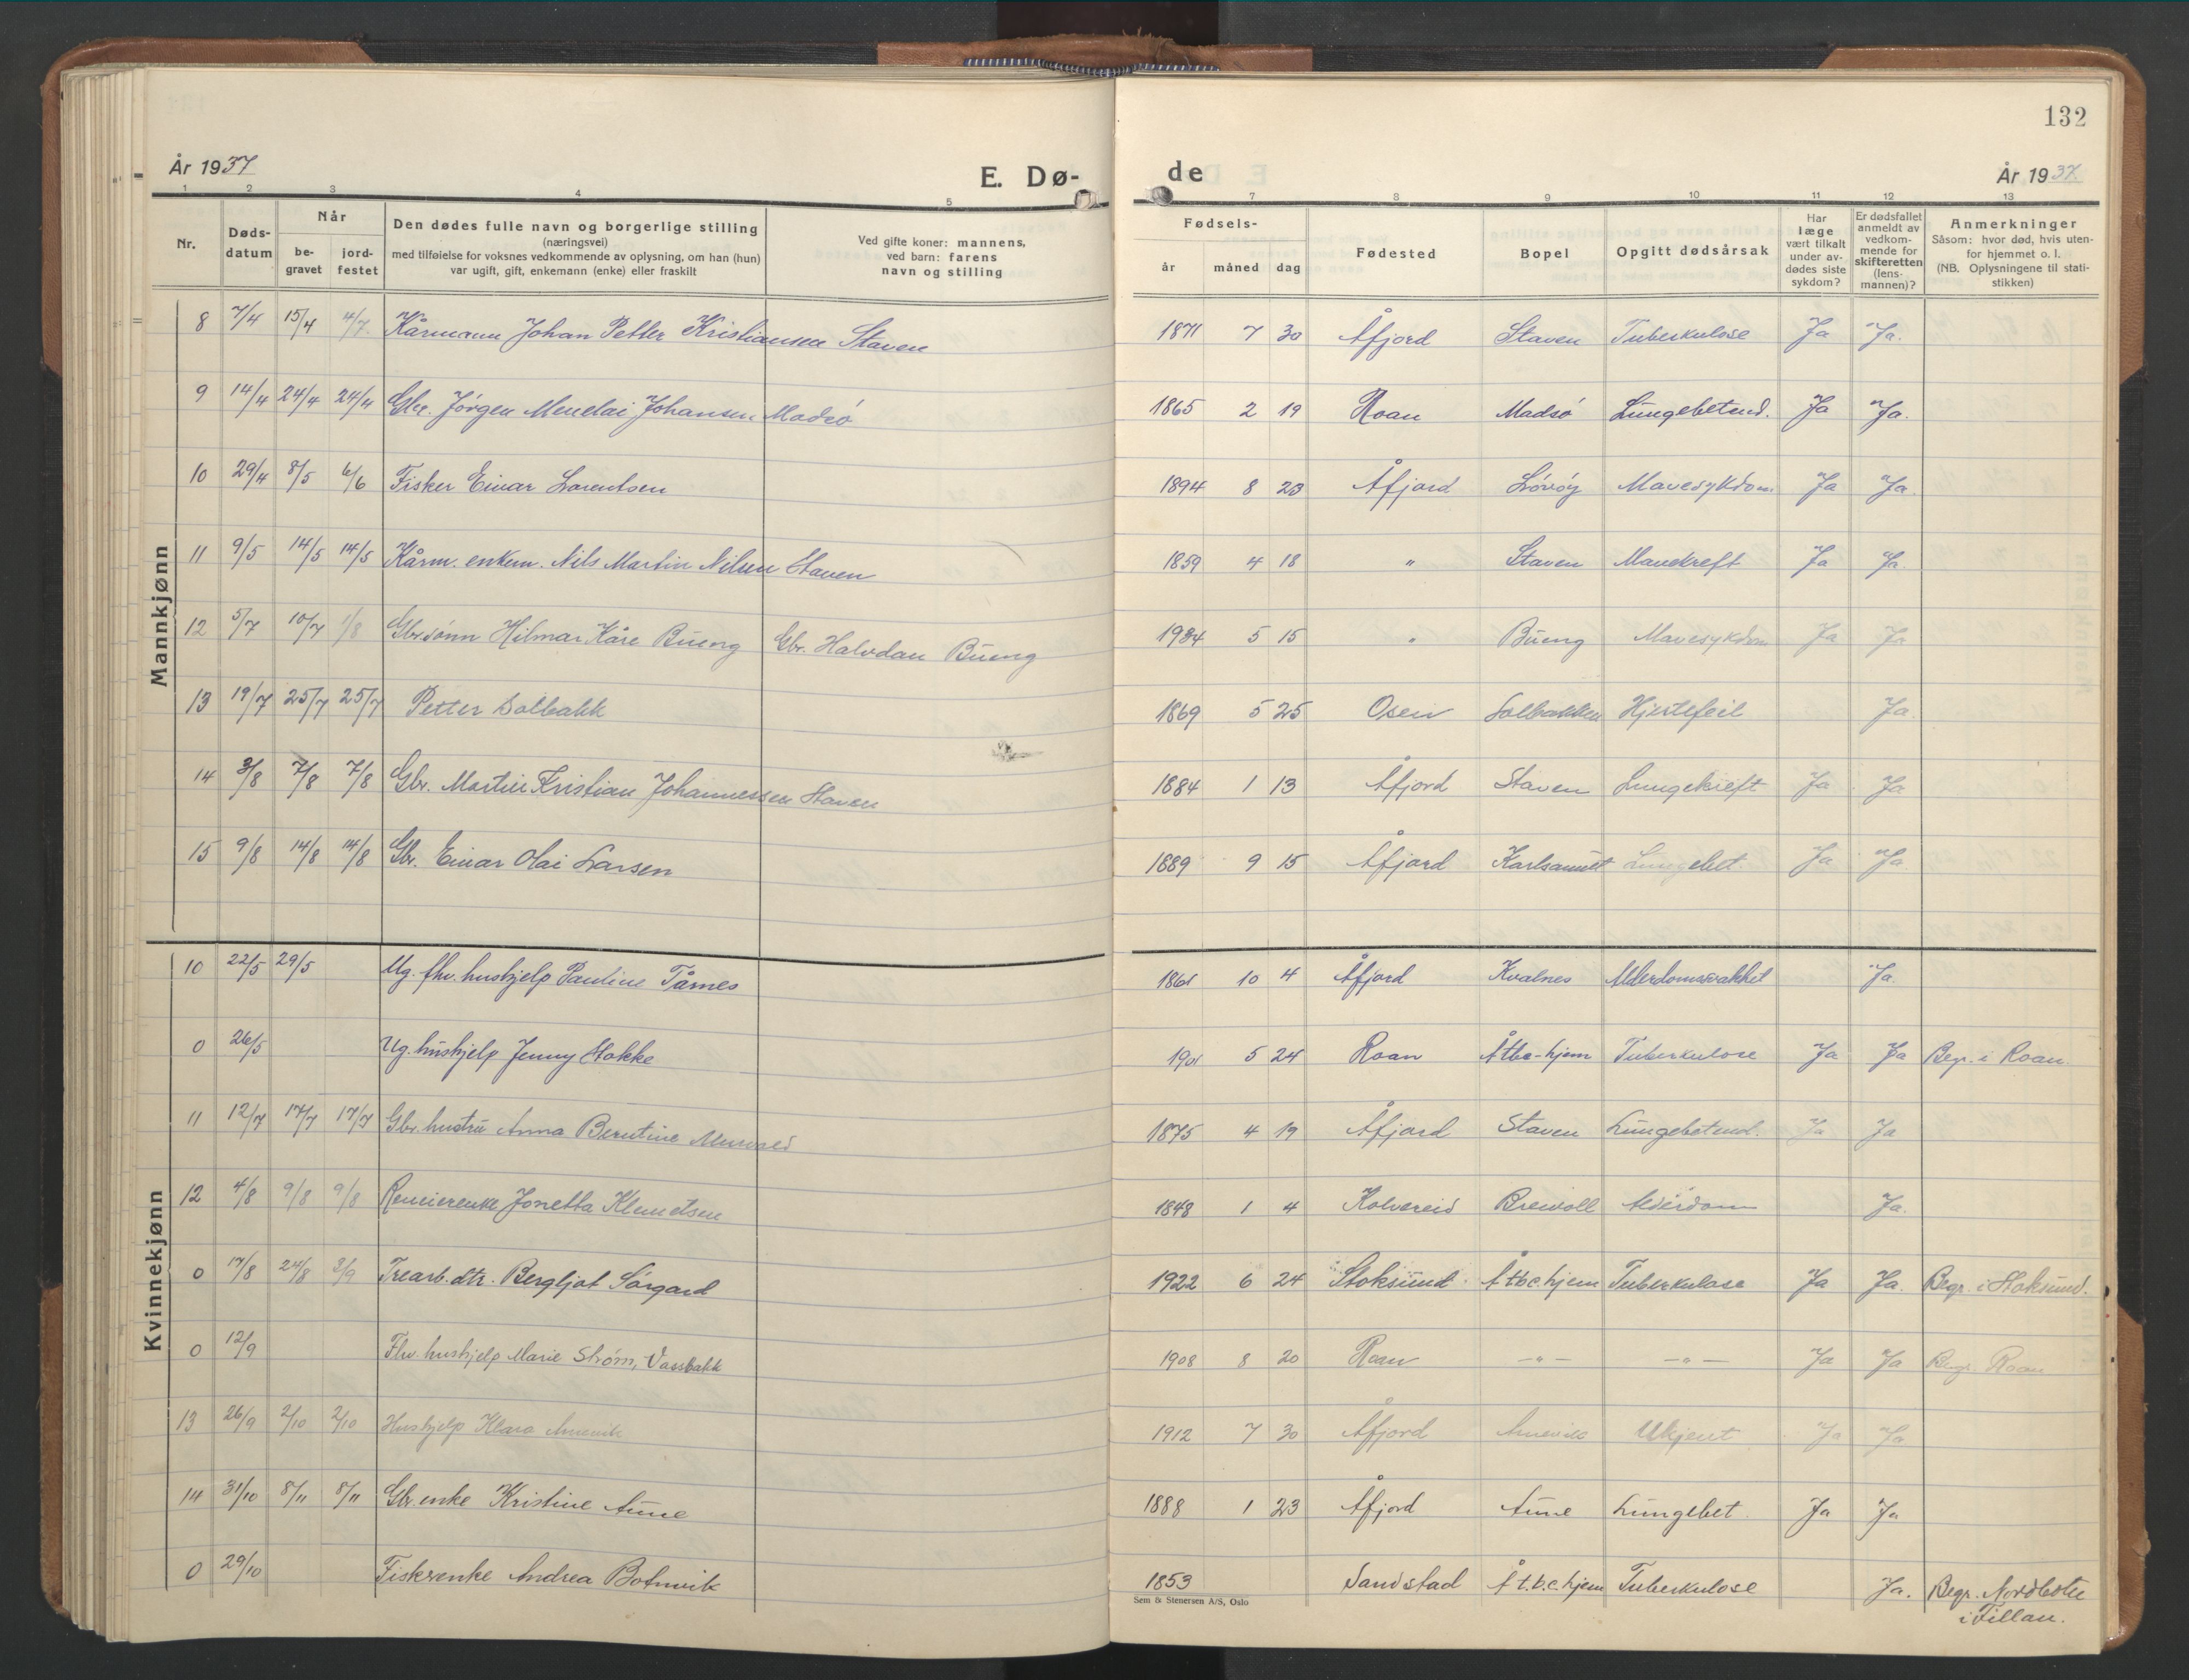 132
År 1937
E. Dø-
de
År 1937.
1 2 3 4 5 7 8 9 10 11 12 13
Nr.
Døds-
datum
Når
be-
gravet
jord-
festet
Den dødes fulle navn og borgerlige stilling
(næringsvei)
med tilføielse for voksnes vedkommende av oplysning, om han (hun)
var ugift, gift, enkemann (enke) eller fraskilt
Ved gifte koner: mannens,
ved barn: farens
navn og stilling
Fødsels-
år måned dag
Fødested
Bopel
Opgitt dødsårsak
Har
læge
vært tilkalt
under av-
dødes siste
sykdom?
Er dødsfallet
anmeldt av
vedkom-
mende for
skifteretten
(lens-
mannen)?
Anmerkninger
Såsom: hvor død, hvis uten-
for hjemmet o. l.
(NB. Oplysningene til stati-
stikken)
Mannkjønn
8 7/4 15/4 4/7 Kårmann Johan Petter Kristiansen Staven 1871 7 30 Åfjord Staven Tuberkulose Ja Ja.
9 14/4 24/4 24/4 Gbr. Jörgen Menelai Johansen Madsö 1865 2 19 Roan Madsö Lungebetend. Ja Ja.
10 29/4 8/5 6/6 Fisker Einar Lorentsen 1894 8 23 Åfjord Lövöy Mavesykdom Ja Ja.
11 9/5 14/5 14/5 Kårm. enkem. Nils Martin Nilsen Staven 1859 4 18 " Staven Mavekreft Ja Ja.
12 5/7 10/7 1/8 Gbr.sönn Hilmar Kåre Bueng Gbr. Halvdan Bueng 1934 5 15 " Bueng Mavesykdom Ja Ja
13 19/7 25/7 25/7 Petter Solbakk 1869 5 25 Osen Solbakken Hjertefeil Ja.
14 3/8 7/8 7/8 Gbr. Martin Kristian Johannessen Staven 1884 1 13 Åfjord Staven Lungekreft Ja Ja
15 9/8 14/8 14/8 Gbr. Einar Olai Larsen 1889 9 15 Åfjord Lungebet. Ja Ja.
Kvinnekjønn
10 22/5 29/5 Ug. fhv. hushjelp Pauline Tårnes 10 4 Åfjord Kvalnes Alderdomssvakhet Ja.
0 26/5 Ug. hushjelp Jenny Stokke 1901 5 24 Roan Å tbc-hjem Tuberkulose Ja Ja Begr. i Roan.
11 12/7 17/7 17/7 Gbr. hustru Anna Berntine 1875 4 19 Åfjord Staven Lungebetend. Ja Ja
12 4/8 9/8 9/8 Jonetta Klemetsen 1848 1 4 Kolvereid Breivoll Alderdom Ja.
0 17/8 24/8 3/9 Trearb. dtr. Bergljot Sörgard 1922 6 24 Stoksund Å tbc. hjem Tuberkulose Ja Ja. Begr. i Stoksund.
0 12/9 Fhv. hushjelp Marie Ström, Vassbakk 1908 8 20 Roan — " — — " — Ja Ja Begr. Roan
13 26/9 2/10 2/10 Hushjelp Klara 1912 7 30 Åfjord Ukjent Ja Ja
14 31/10 8/11 8/11 Gbr. enke Kristine Aune 1888 1 23 Åfjord Aune Lungebet Ja Ja
0 29/10 Fiskerenke Andrea Botnvik 1853 Sandstad Å t.b.c. hjem Tuberkulose Ja. Begr. Nordbotn
i Fillan.
Sem & Stenersen A/S, Oslo